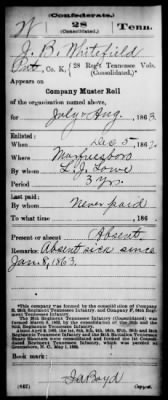 (Confederate.)
W 28 Tenn.
(Consolidated.)
J. B. Whitefield
Pvt, Co. K, 28 Reg't Tennessee Vols.
(Consolidated.)
Appears on
Company Muster Roll
of the organization named above,
for July & Aug, 1863
Enlisted:
When Dec 5, 1862
Where Murfreesboro
By whom L. J. Lowe
Period 3 yrs.
Last paid:
By whom Never paid
To what time , 186 .
Present or absent Absent
Remarks: Absent sick since
Jan. 8, 1863.
Book mark:
Ira Boyd
(642) Copyist.